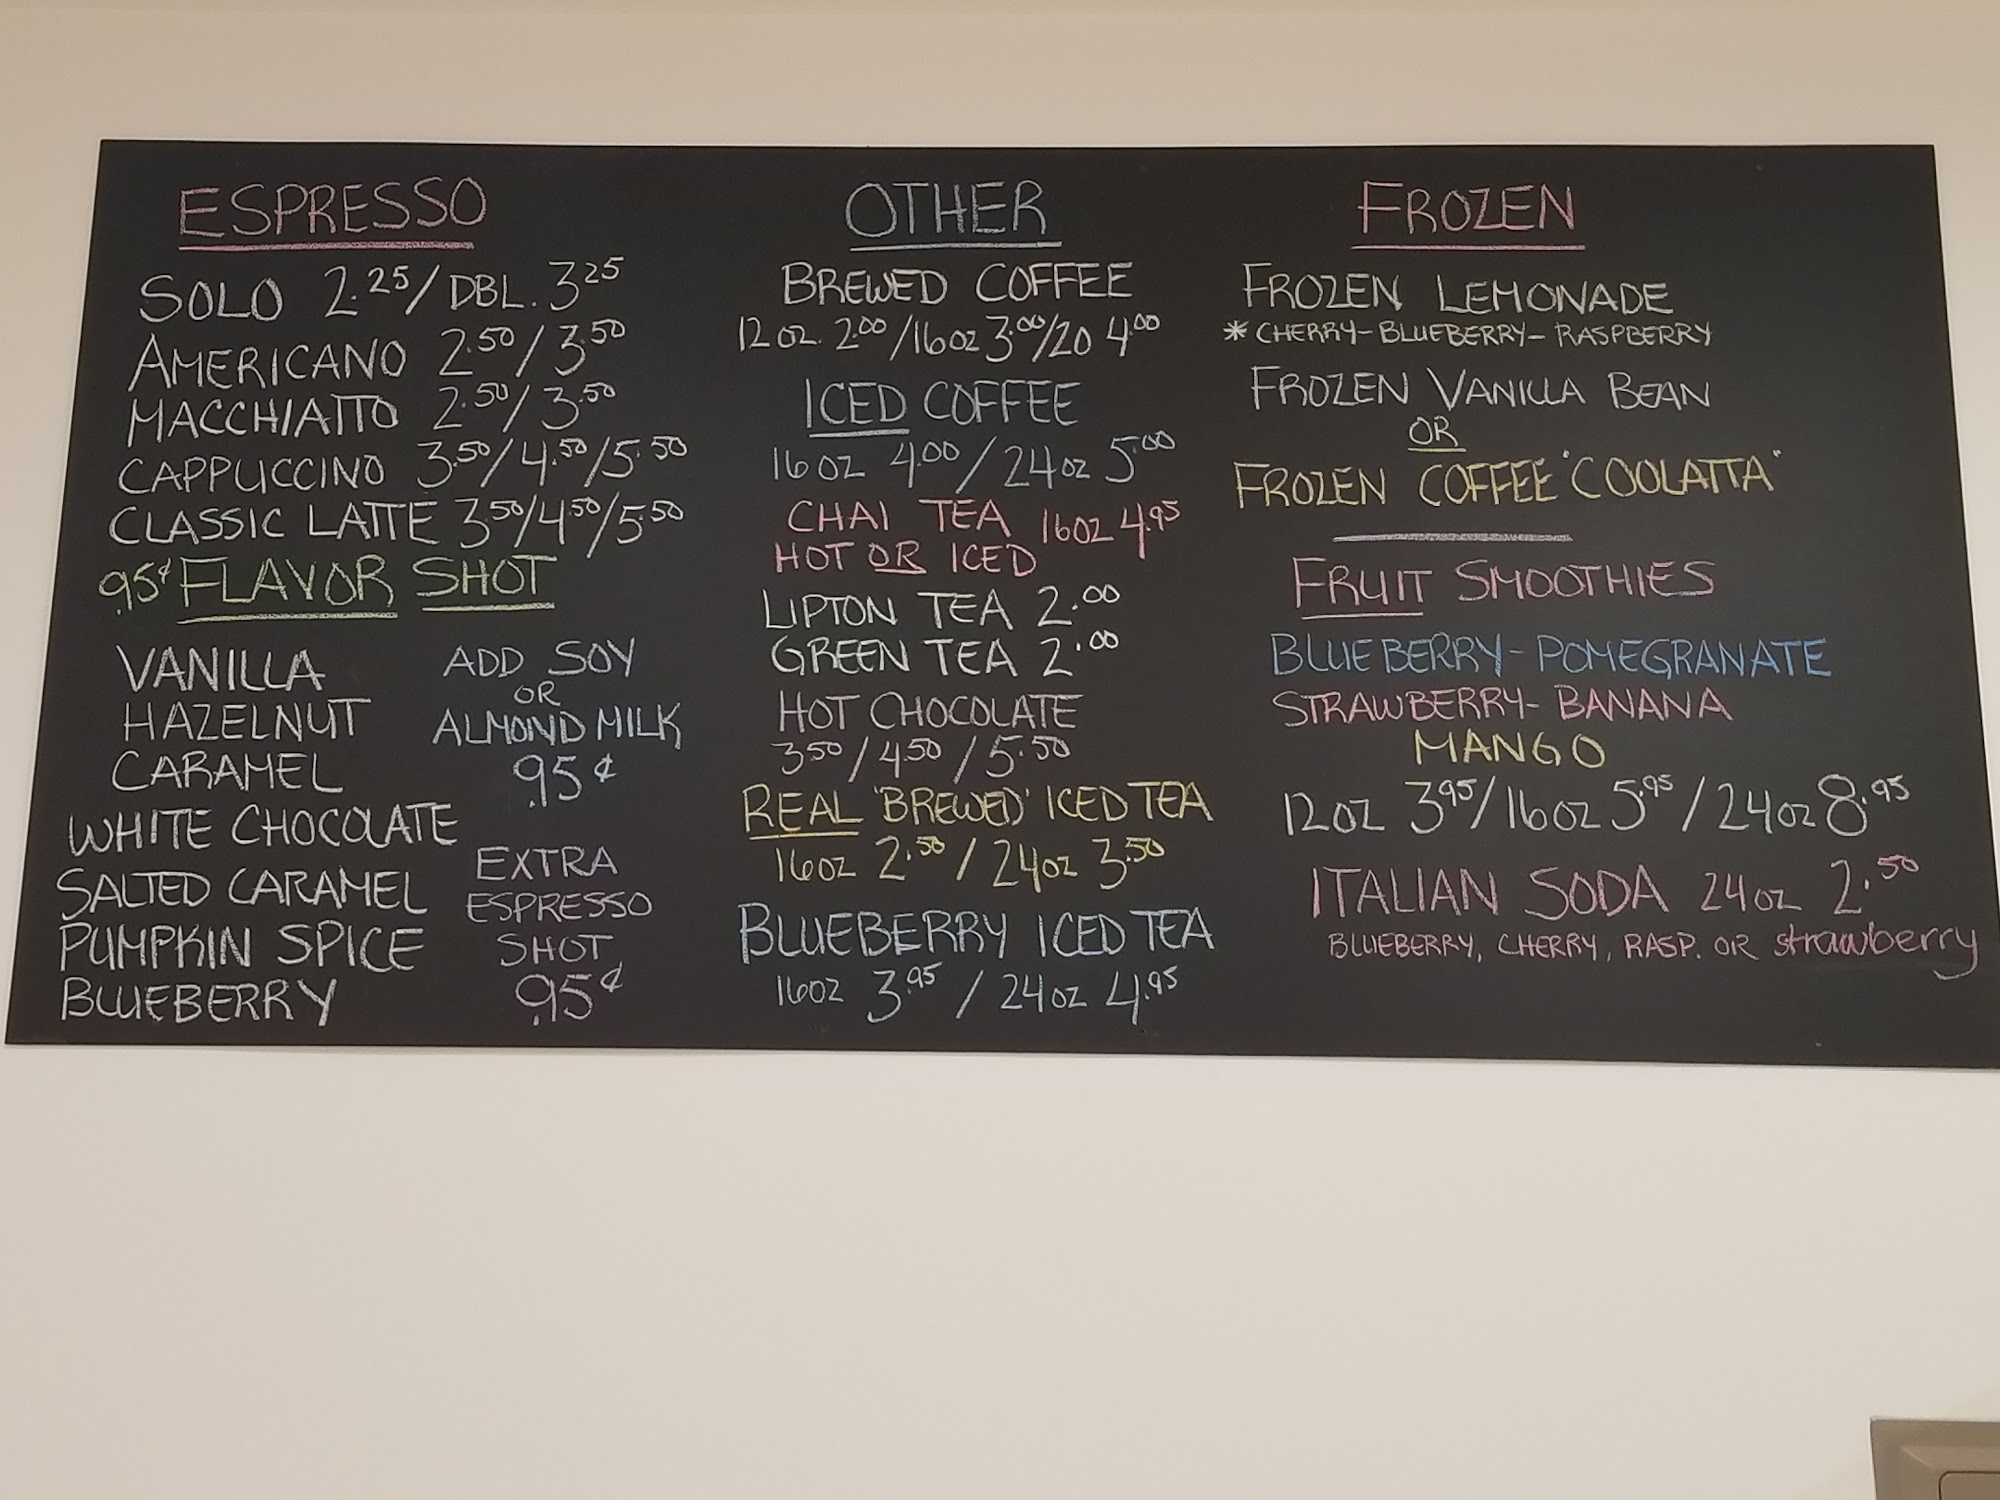 ESPRESSO
SOLO 2.25/DBL. 3.25
AMERICANO 2.50/3.50
MACCHIATTO 2.50/3.50
CAPPUCCINO 3.50/4.50/5.50
CLASSIC LATTE 3.50/4.50/5.50
.95¢ FLAVOR SHOT
VANILLA
HAZELNUT
CARAMEL
WHITE CHOCOLATE
SALTED CARAMEL
PUMPKIN SPICE
BLUEBERRY
ADD SOY
OR
ALMOND MILK
.95¢
EXTRA
ESPRESSO
SHOT
.95¢
OTHER
BREWED COFFEE
12 OZ. 2.00/16 OZ 3.00/20 4.00
ICED COFFEE
16 OZ 4.00/24 OZ 5.00
CHAI TEA 16OZ 4.95
HOT OR ICED
LIPTON TEA 2.00
GREEN TEA 2.00
HOT CHOCOLATE
3.50/4.50/5.50
REAL "BREWED" ICED TEA
16OZ 2.50/24OZ 3.50
BLUEBERRY ICED TEA
16OZ 3.95/24OZ 4.95
FROZEN
FROZEN LEMONADE
*CHERRY-BLUEBERRY-RASPBERRY
FROZEN VANILLA BEAN
OR
FROZEN COFFEE "COOLATTA"
FRUIT SMOOTHIES
BLUEBERRY-POMEGRANATE
STRAWBERRY-BANANA
MANGO
12OZ 3.95/16OZ 5.95/24OZ 8.95
ITALIAN SODA 24OZ 2.50
BLUEBERRY, CHERRY, RASP. OR strawberry